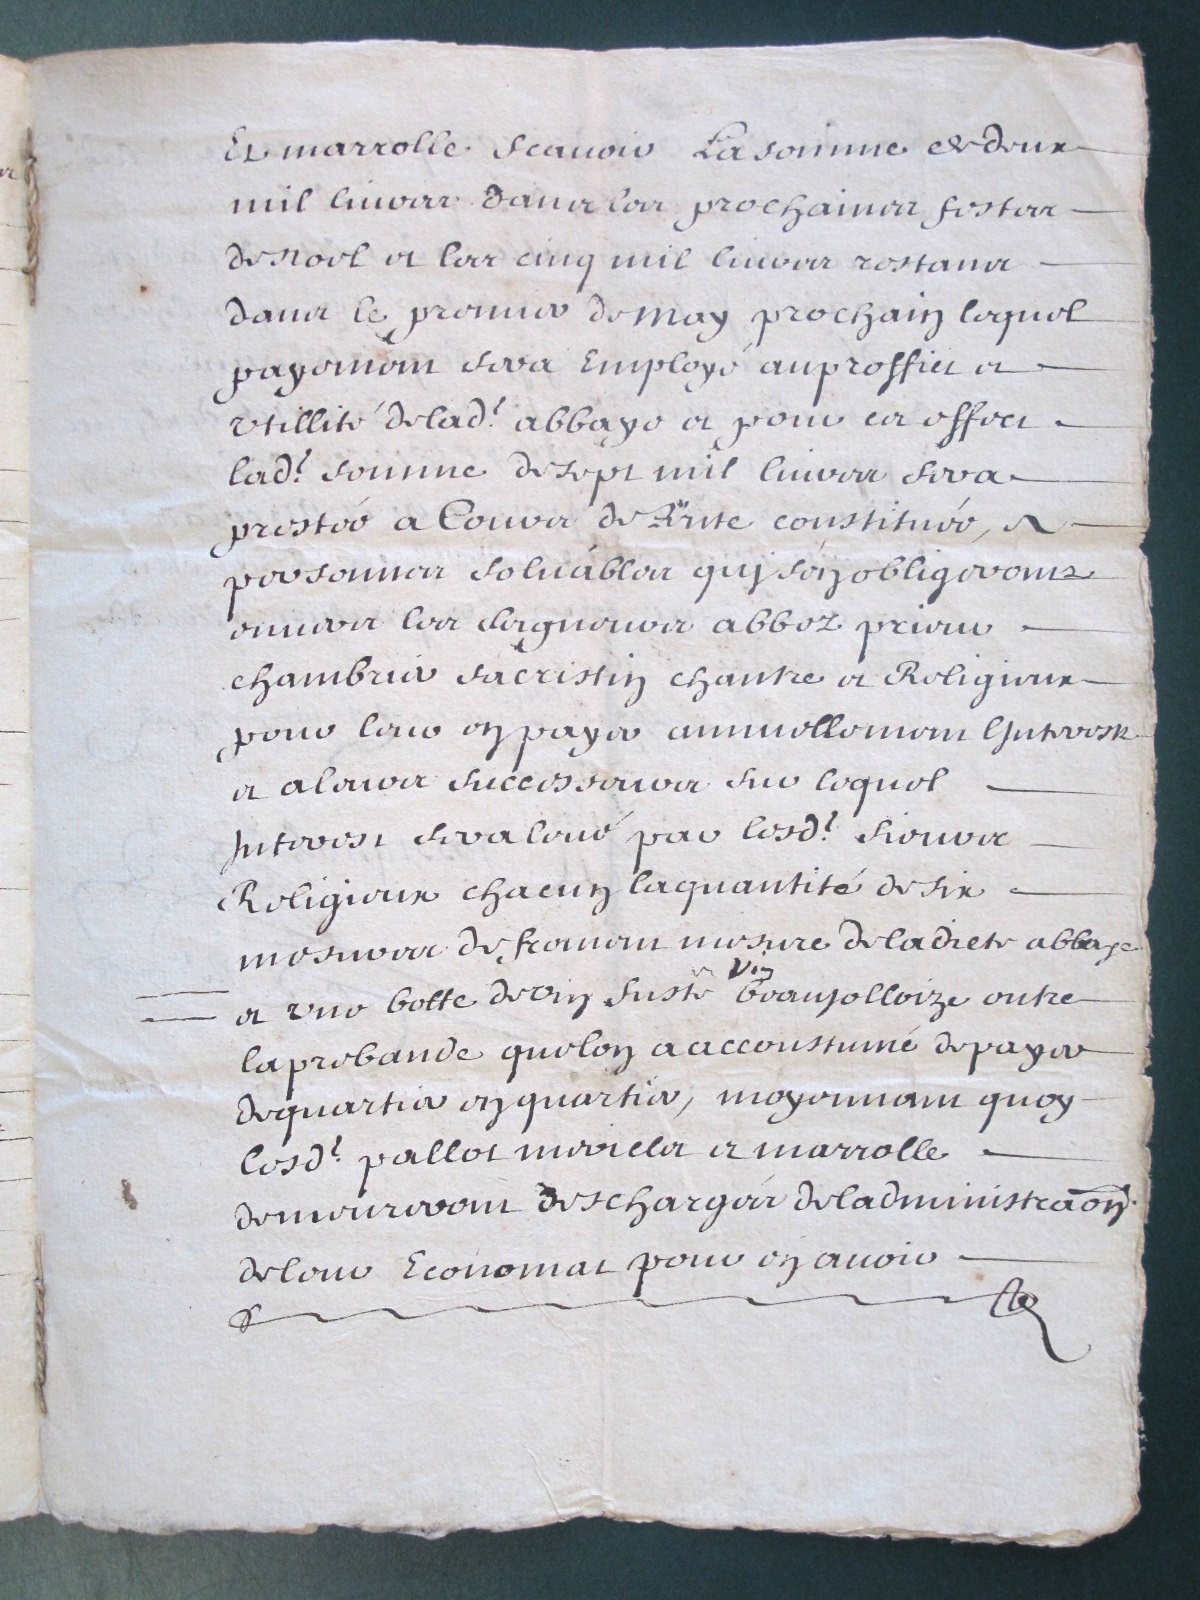 Et marrolle scauoir La somme de deux
mil liures dans les prochaines festes
de noel et les cinq mil liures restans
dans le premier de may prochain lequel
payement sera Employé au proffict et
vtillité de lad.t abbaye et pour cet effect
lad.t somme de sept mil liures sera
prestée a Cours de Rente constituée, a
personnes soluables quj s'en obligeront
enuers les seigneurs abbez prieur
chambrier sacristin chantre et Religieux
pour leur en payer annuellement l'Jnterest
et a leurs successeurs sur lequel
Jnterest sera leué par lesd.t sieurs
Religieux chacun la quantité de six
mesures de froment mesure de la diete abbaye
et vne botte de vin fuste vin beaujolloize outre
la prebande que lon a accoustumé de payer
de quartier en quartier, moyennant quoy
lesd.t pallot et marrolle
demeureront deschargés de ladministraon
de leur Economat pour en auoir